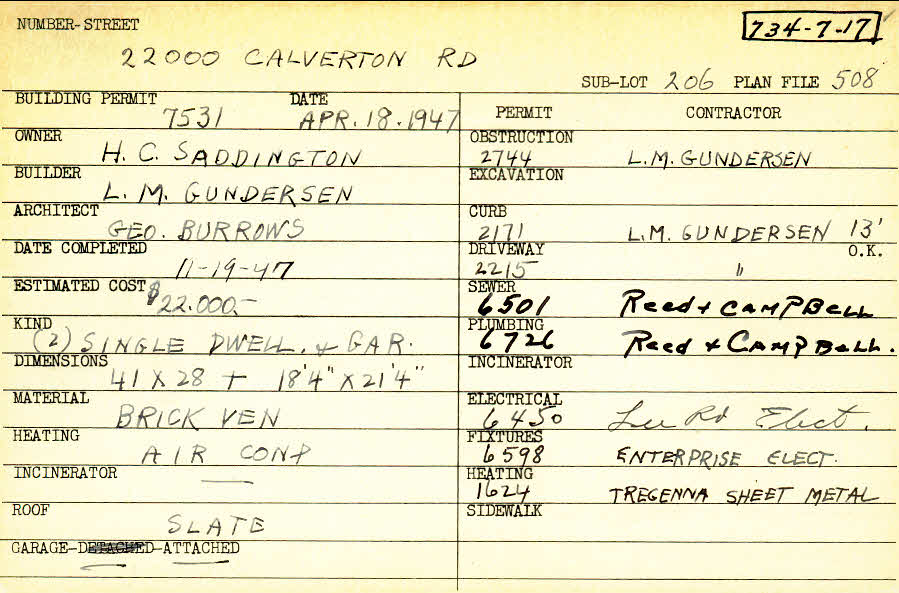 NUMBER-STREET
734-7-17
22000 CALVERTON RD
SUB-LOT 206 PLAN FILE 508
BUILDING PERMIT DATE
7531 APR. 18. 1947
OWNER
H. C. SADDINGTON
BUILDER
L. M. GUNDERSEN
ARCHITECT
GEO. BURROWS
DATE COMPLETED
11-19-47
ESTIMATED COST $22.000.-
KIND
(2) SINGLE DWELL. & GAR.
DIMENSIONS
41 X 28 + 18'4" X 21'4"
MATERIAL
BRICK VEN
HEATING
AIR COND
INCINERATOR
—
ROOF
SLATE
GARAGE-DETACHED-ATTACHED
PERMIT CONTRACTOR
OBSTRUCTION
2744 L.M. GUNDERSEN
EXCAVATION
CURB
2171 L.M. GUNDERSEN 13'
DRIVEWAY O.K.
2215 "
SEWER
6501 Reed & CAMPBELL
PLUMBING
6726 Reed & CAMPBELL.
INCINERATOR
ELECTRICAL
6450 Lee Rd Elect.
FIXTURES
6598 ENTERPRISE ELECT.
HEATING
1624 TREGENNA SHEET METAL
SIDEWALK